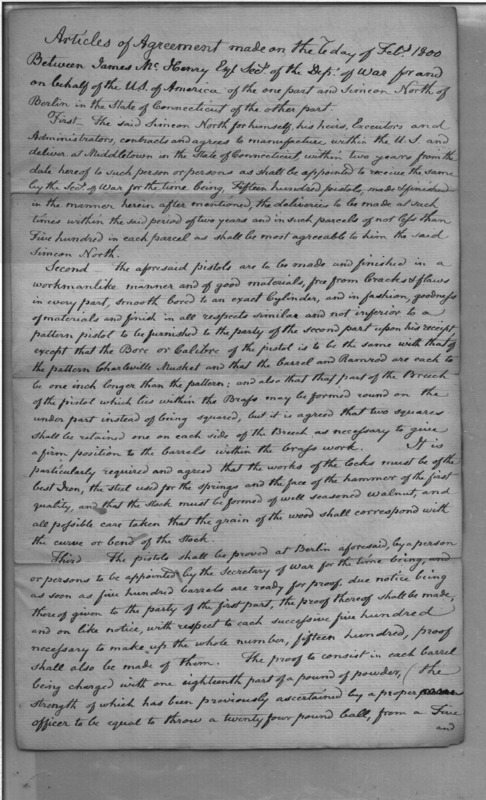 Articles of Agreement made on the 7e day of Feby. 1800
Between James Mc. Henry Esqr Secy. of the Dept. of War for and
on behalf of the U.S. of America of the one part and Simeon North of
Berlin in the State of Connecticut of the other part.
First The said Simeon North for himself, his heirs, Executors and
Administrators, contracts and agrees to manufacture within the U.S and
deliver at Middletown in the State of Connecticut, within two years from the
date hereof to such person or persons as shall be appointed to receive the same
by the Secy. of War for the time being, Fifteen hundred pistols, made & finished
in the manner herein after mentioned, the deliveries to be made at such
times within the said period of two years and in such parcels of not less than
Five hundred in each parcel as shall be most agreeable to him the said
Simeon North.
Second the aforesaid pistols are to be made and finished in a
workmanlike manner and of good materials, free from Cracks & flaws
in every part, smooth bored to an exact Cylinder, and in fashion, goodness
of materials and finish in all respects similar and not inferior to a
pattern pistol to be furnished to the party of the second part upon his receipt
except that the Bore or Calibre of the pistol is to be the same with that of
the pattern Charleville Musket and that the Barrel and Ramrod are each to
be one inch longer than the pattern; and also that that part of the Breech
of the pistol which lies within the Brass may be formed round on the
under part instead of being squared, but it is agreed that two squares
shall be retained one on each side of the Breech as necessary to give
a firm position to the barrels within the brass work. It is
particularly required and agreed that the works of the locks must be of the
best Iron, the steel used for the springs and the face of the hammer of the first
quality, and that the stock must be formed of well seasoned walnut, and
all possible care taken that the grain of the wood shall correspond with
the curve or bend of the stock.
Third The pistols shall be proved at Berlin aforesaid, by a person
or persons to be appointed by the Secretary of War for the time being, and
as soon as five hundred barrels are ready for proof, due notice being
thereof given to the party of the first part, the proof thereof shall be made,
and on like notice, with respect to each successive five hundred
necessary to make up the whole number, fifteen hundred, proof
shall also be made of them. The proof to consist in each barrel
being charged with one eighteenth part of a pound of powder, (the
strength of which has been previously ascertained by a proper
officer to be equal to throw a twenty four pound ball, from a Five
and